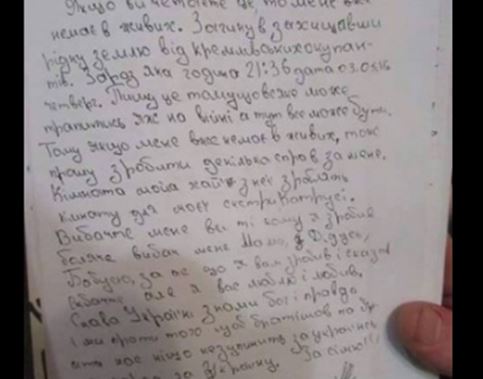 Якщо ви читаєте це, то мене вже
немає в живих. Загинув захищавши
рідну землю від кремлівських окупан-
тів. Зараз година 21:36 дата 03.
четверг. Пишу це тому що може
трапитись я ж на війні а тут все може бути.
Тому якщо мене вже немає в живих, тож
прошу зробити декілька справ за мене.
Кімната моя хай з неї зроблять
кімнату для моєї сестри Катрусі.
Вибачте мене ви ті кому я зробив
боляче вибач мене Мамо, Дідусь,
Бабусю, за все що я вам зробив і сказав
вибачте але я вас люблю і любив.
Слава Україні з нами бог і правда
і ми проти того щоб братішов на
нас ніщо незупинить за українсь
за Україну. За сімю!!!